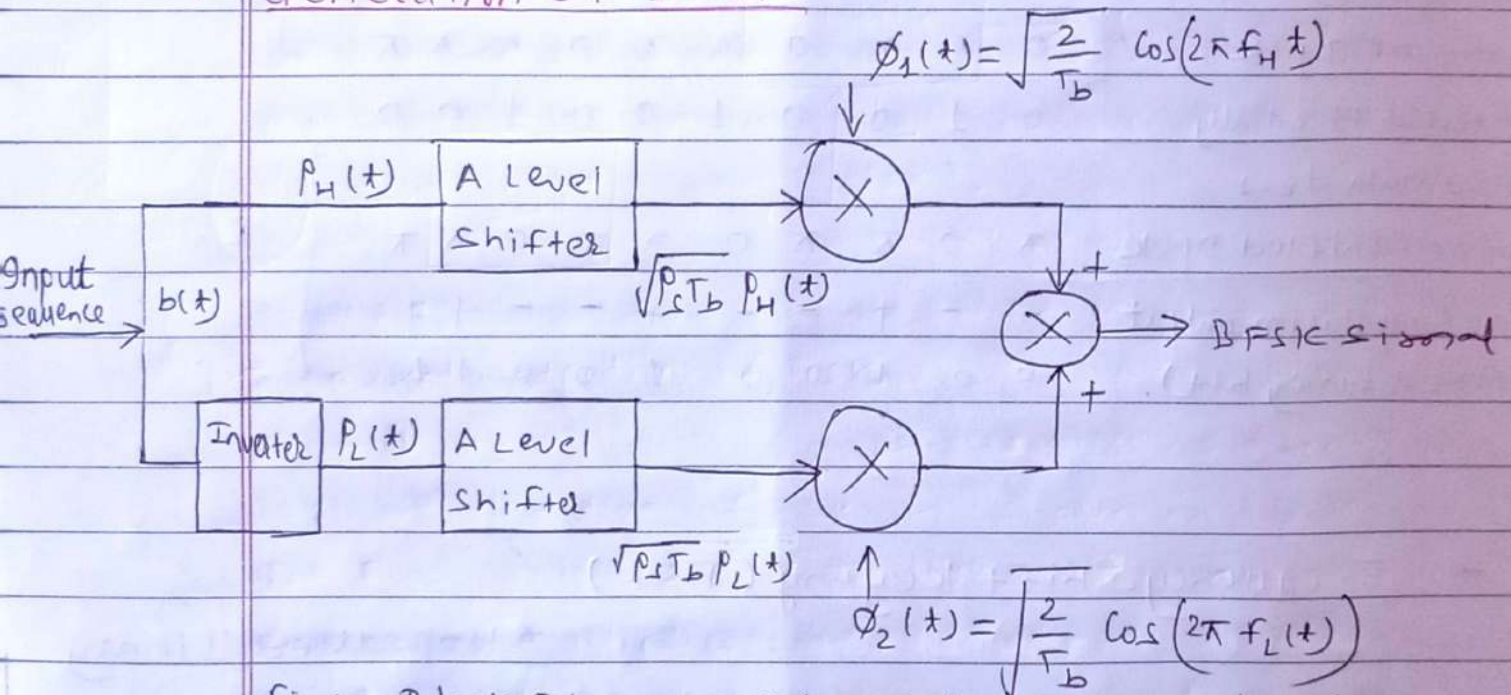 ϕ₁(t) = √(2/T_b) cos(2π f_H t)
P_H(t)
A Level
Shifter
√(P_s T_b) P_H(t)
Input
sequence
b(t)
×
+
×
BFSK Signal
+
Inverter
P_L(t)
A Level
Shifter
×
√(P_s T_b) P_L(t)
ϕ₂(t) = √(2/T_b) cos(2π f_L(t))